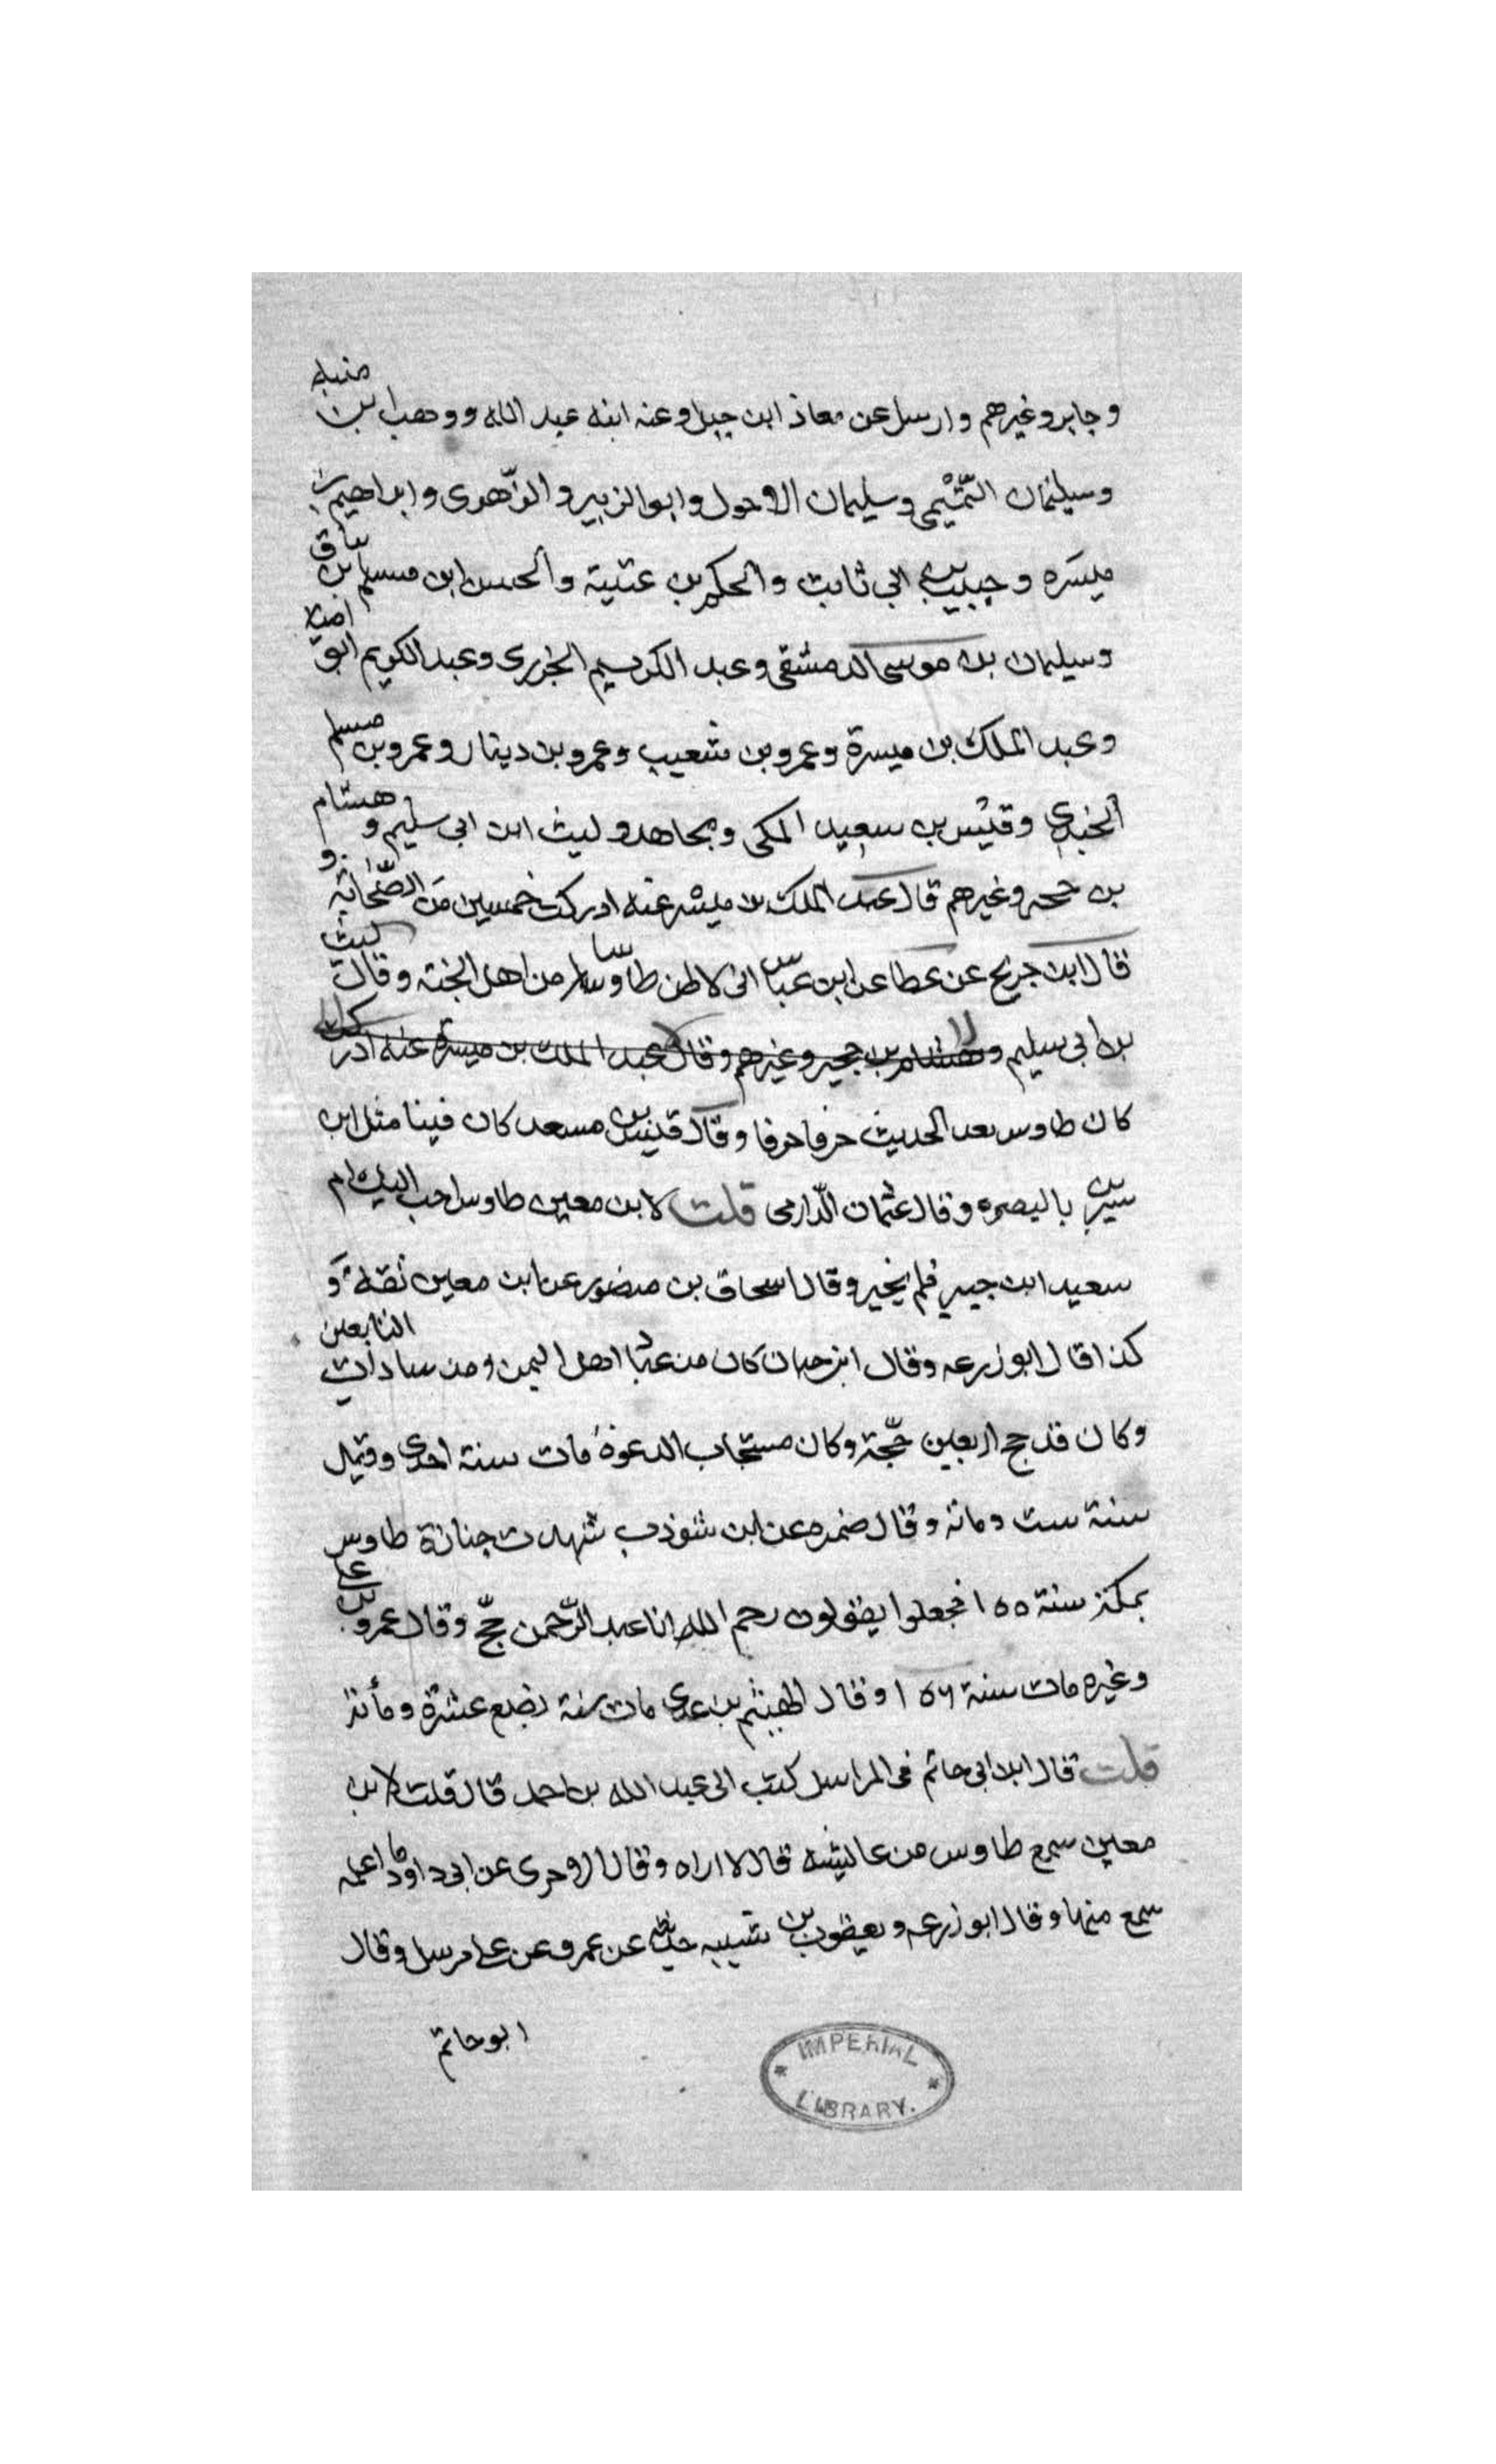 وجابر وغيرهم وارسل عن معاذ ابن جبل وعنه ابنه عبد الله ووهب ابن منبه
وسليمان التّيْمي وسليمان الاحول وابو الزبير والزّهرى وابراهيم بن
ميسَره وحبيب بن ابي ثابت والحكم بن عتيبة والحسن ابن مسلم بن يناق
وسليمان بن موسى الدمشقى وعبد الكريم الجزرى وعبد الكريم ابو امية
وعبد الملك بن ميسرة وعمرو بن شعيب وعمرو بن دينار وعمرو بن مسلم
الجندي وقيس بن سعيد المكى ومجاهد وليث ابن ابي سليم وهشام
بن حجر وغيرهم قال عبد الملك بن ميسْر عنه ادركت خمسين مَن الصّحابة و
قال ابن جريج عن عطا عن ابن عبّاس انى لاظن طاوسا من اهل الجنة وقال ليث
بن ابي سليم وهشام بن حجير وغيرهم وقال عبد الملك بن ميسرة عنه ادر
كان طاوس يعد الحديث حرفا حرفا وقال قيس بن مسعد كان فينا مثل ابن
سيرين باليصره وقال عثمان الدّارمى قلت لابن معين طاوس احب اليك ام
سعيد ابن جبير فلم يخير وقال اسحاق بن منصور عن ابن معين ثقة و
كذا قال ابو زرعه وقال ابن حبان كان من عبّاد اهل اليمن ومن سادات التابعين
وكان قد حج اربعين حّجة وكان مستجاب الدعوة مات سنة احدى وقيل
سنة ست ومائة وقال ضمره عن ابن شوذب شهدت جنازة طاوس
بمكة سنة ١٥٥ فجعلوا يقولون رحم الله ابا عبد الرّحمن حجّ وقال عمرو بن على
وغيره مات سنة ١٥٦ وقال الهيثم بن عدى مات سنة بضع عشرة ومأئة
قلت قال ابن ابي حاتم فى المراسل كتب الى عبد الله بن احمد قال قلت لابن
معين سمع طاوس من عائيشه قال لا اراه وقال الاجرى عن ابى داود ما اعلمه
سمع منها وقال ابو زرعه ويعقوب بن شيبه حديثه عن عمر وعن على مرسل وقال
ابو حاتم
IMPERIAL LIBRARY.